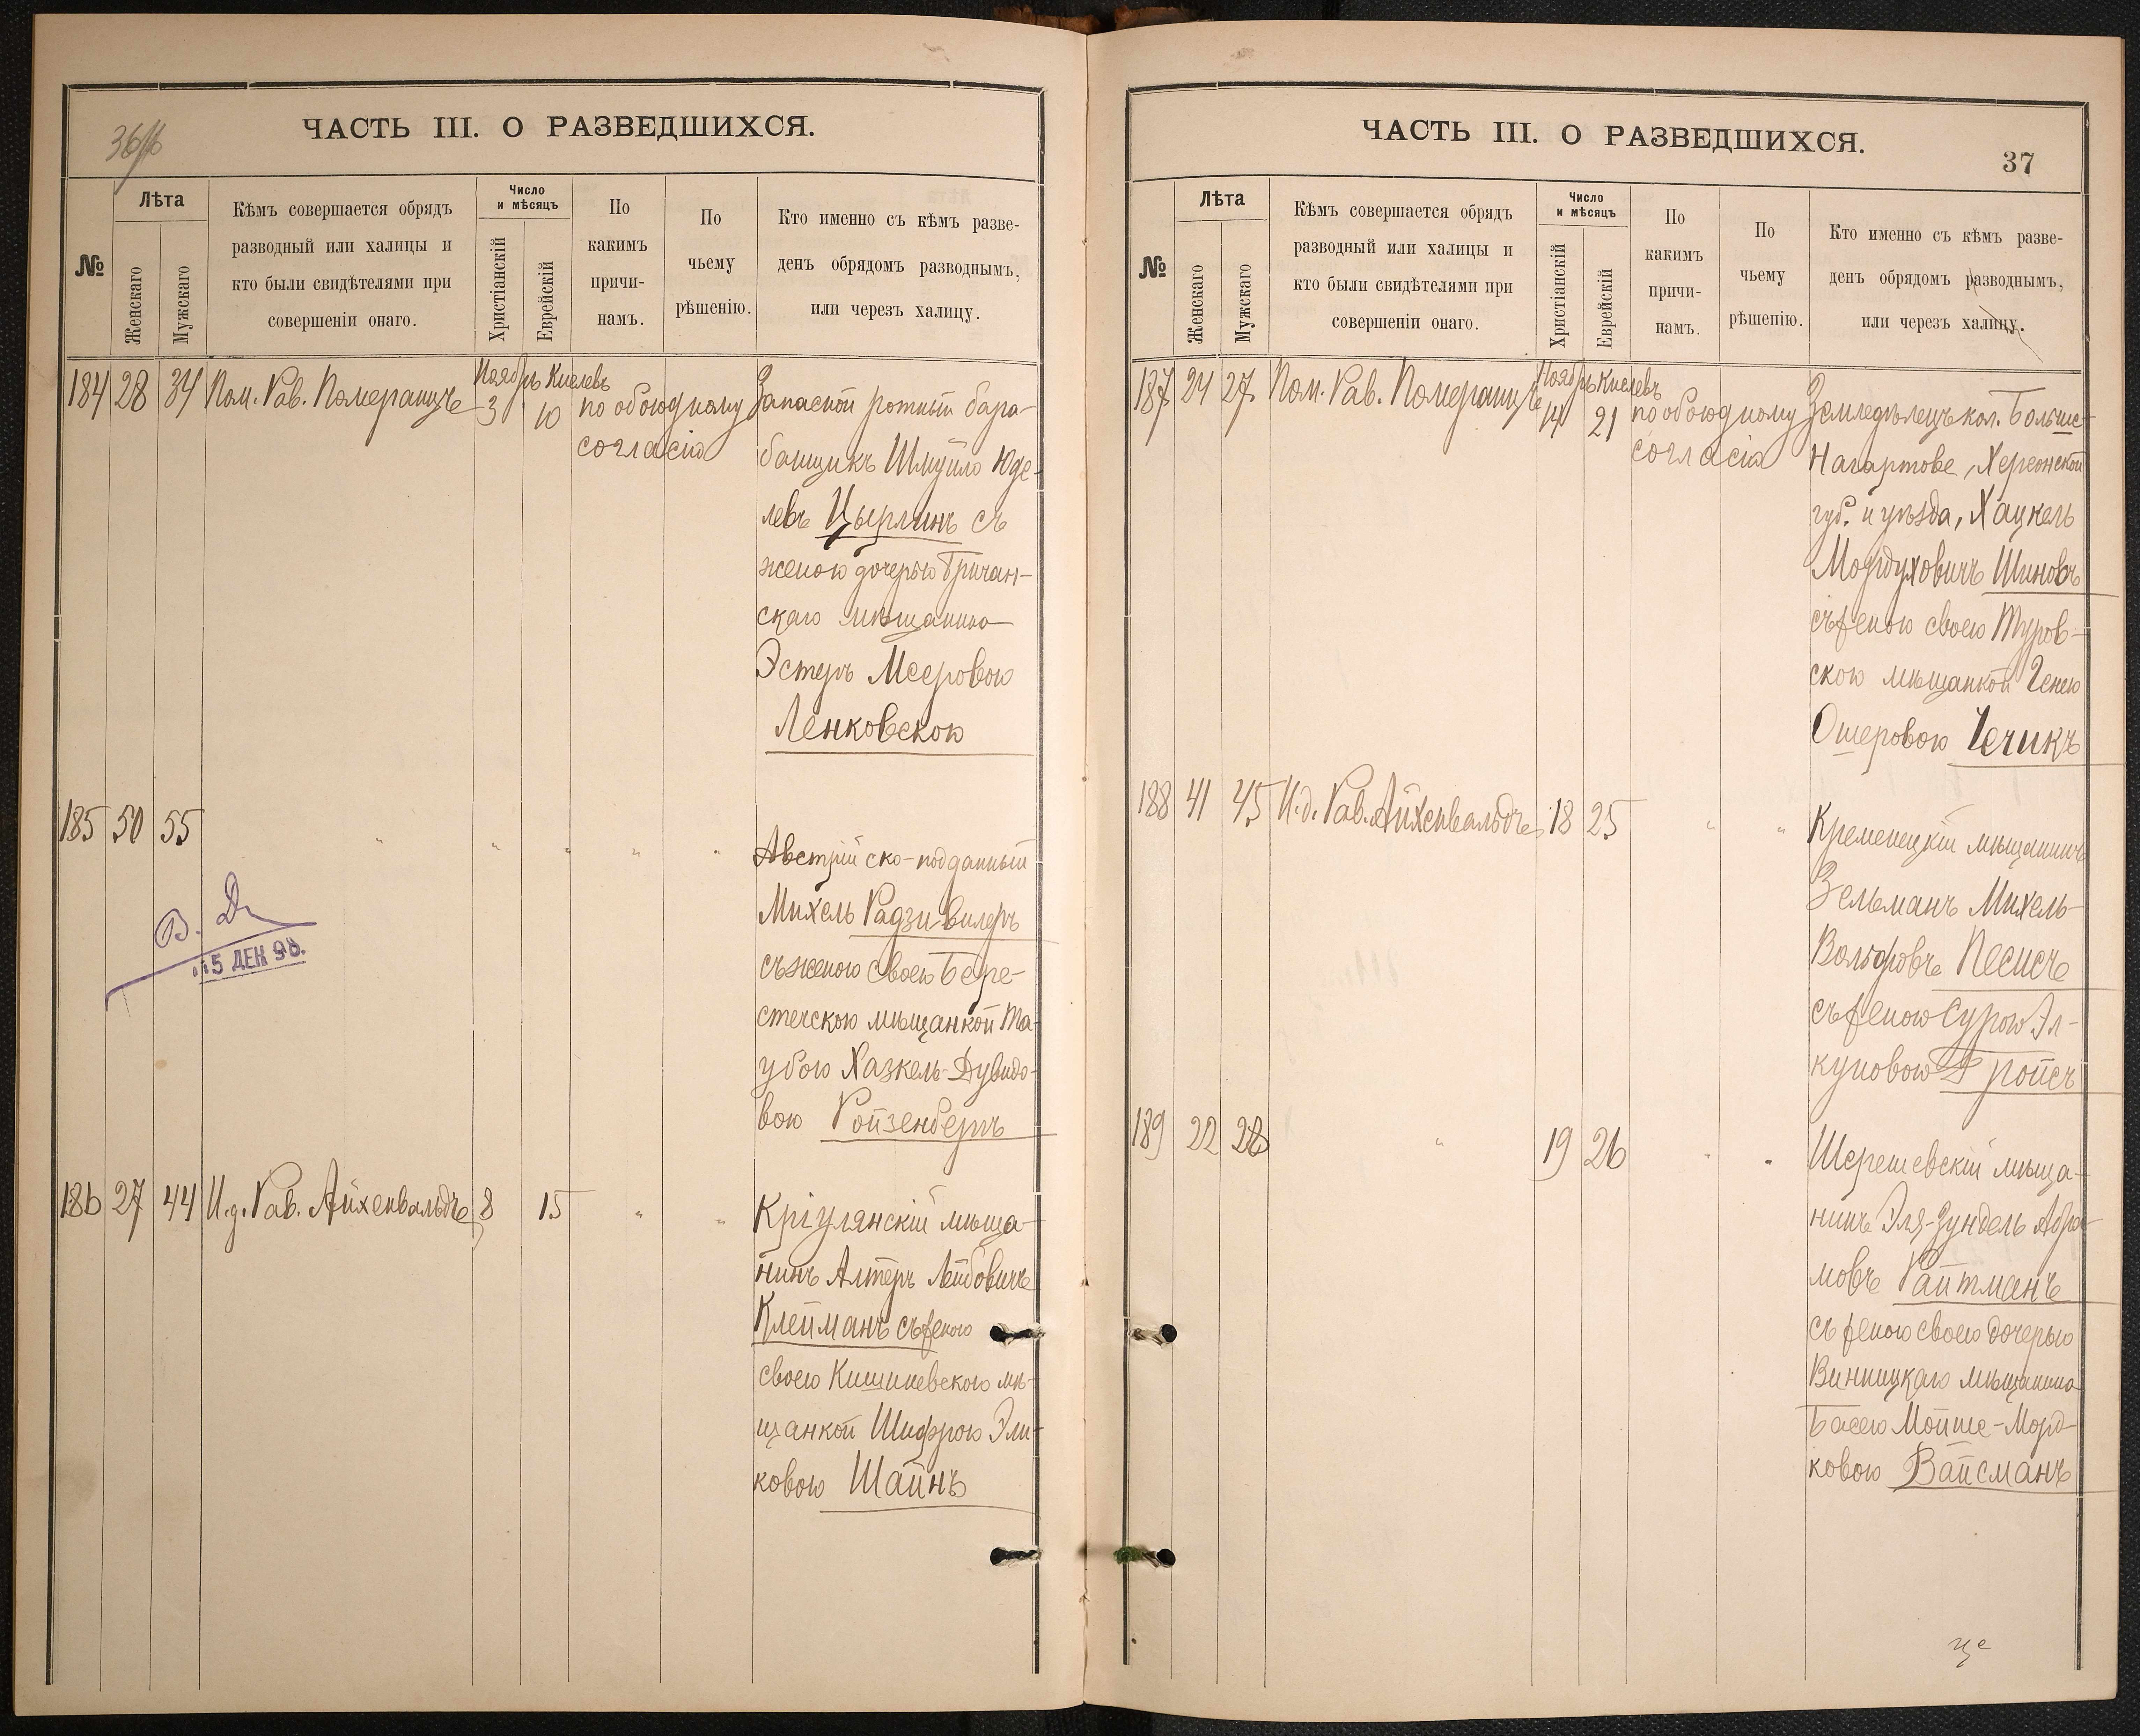 36/
ЧАСТЬ III. О РАЗВЕДШИХСЯ.
№
Лѣта
Женскаго
Мужскаго
Кѣмъ совершается обрядъ
разводный или халицы и
кто были свидѣтелями при
совершеніи онаго.
Число
и мѣсяцъ
Христіанскій
Еврейскій
По
какимъ
причи-
намъ.
По
чьему
рѣшенію.
Кто именно съ кѣмъ разве-
денъ обрядомъ разводнымъ,
или черезъ халицу.
184 28 34 Пом. Рав. Померанцъ
Ноябрь Кислевъ
3 10
по обоюдному
согласію
Запасной ротный бара-
банщикъ Шмуйло Юде-
левъ Цырлинъ съ
женою дочерью Бричан-
скаго мѣщанина
Эстеръ Мееровою
Ленковскою
185 50 55 " " " " "
Австрійско-подданный
Михель Радзивилеръ
съ женою своею Бере-
стечскою мѣщанкой Та-
убою Хазкель-Дувидо-
вою Ройзенбергъ
В. Д.
15 ДЕК 98.
186 27 44 И.д. Рав. Айхенвальдъ 8 15 " "
Кріулянскій мѣща-
нинъ Алтеръ Лейбовичъ
Клейманъ съ женою
своею Кишиневскою мѣ-
щанкой Шифрою Эли-
ковою Шайнъ
ЧАСТЬ III. О РАЗВЕДШИХСЯ.
37
№
Лѣта
Женскаго
Мужскаго
Кѣмъ совершается обрядъ
разводный или халицы и
кто были свидѣтелями при
совершеніи онаго.
Число
и мѣсяцъ
Христіанскій
Еврейскій
По
какимъ
причи-
намъ.
По
чьему
рѣшенію.
Кто именно съ кѣмъ разве-
денъ обрядомъ разводнымъ,
или черезъ халицу.
187 24 27 Пом. Рав. Померанцъ
Ноябрь Кислевъ
14 21
по обоюдному
согласію
Земледѣлецъ кол. Больше-
Нагартове, Херсонской
губ. и уѣзда, Хацкель
Мордуховичъ Шиновъ
съ женою своею Туров-
скою мѣщанкой Генею
Ошеровою Чечикъ
188 41 45 И.д. Рав. Айхенвальдъ 18 25 " "
Кременецкій мѣщанинъ
Зельманъ Михель-
Вольфовъ Песисъ
съ женою Сурою Эл-
куновою Тройсъ
189 22 28 " 19 26 " "
Шерешевскій мѣща-
нинъ Эля-Зундель Абра-
мовъ Райтманъ
съ женою своею дочерью
Винницкаго мѣщанина
Басею Мойше-Морд-
ковою Вайсманъ